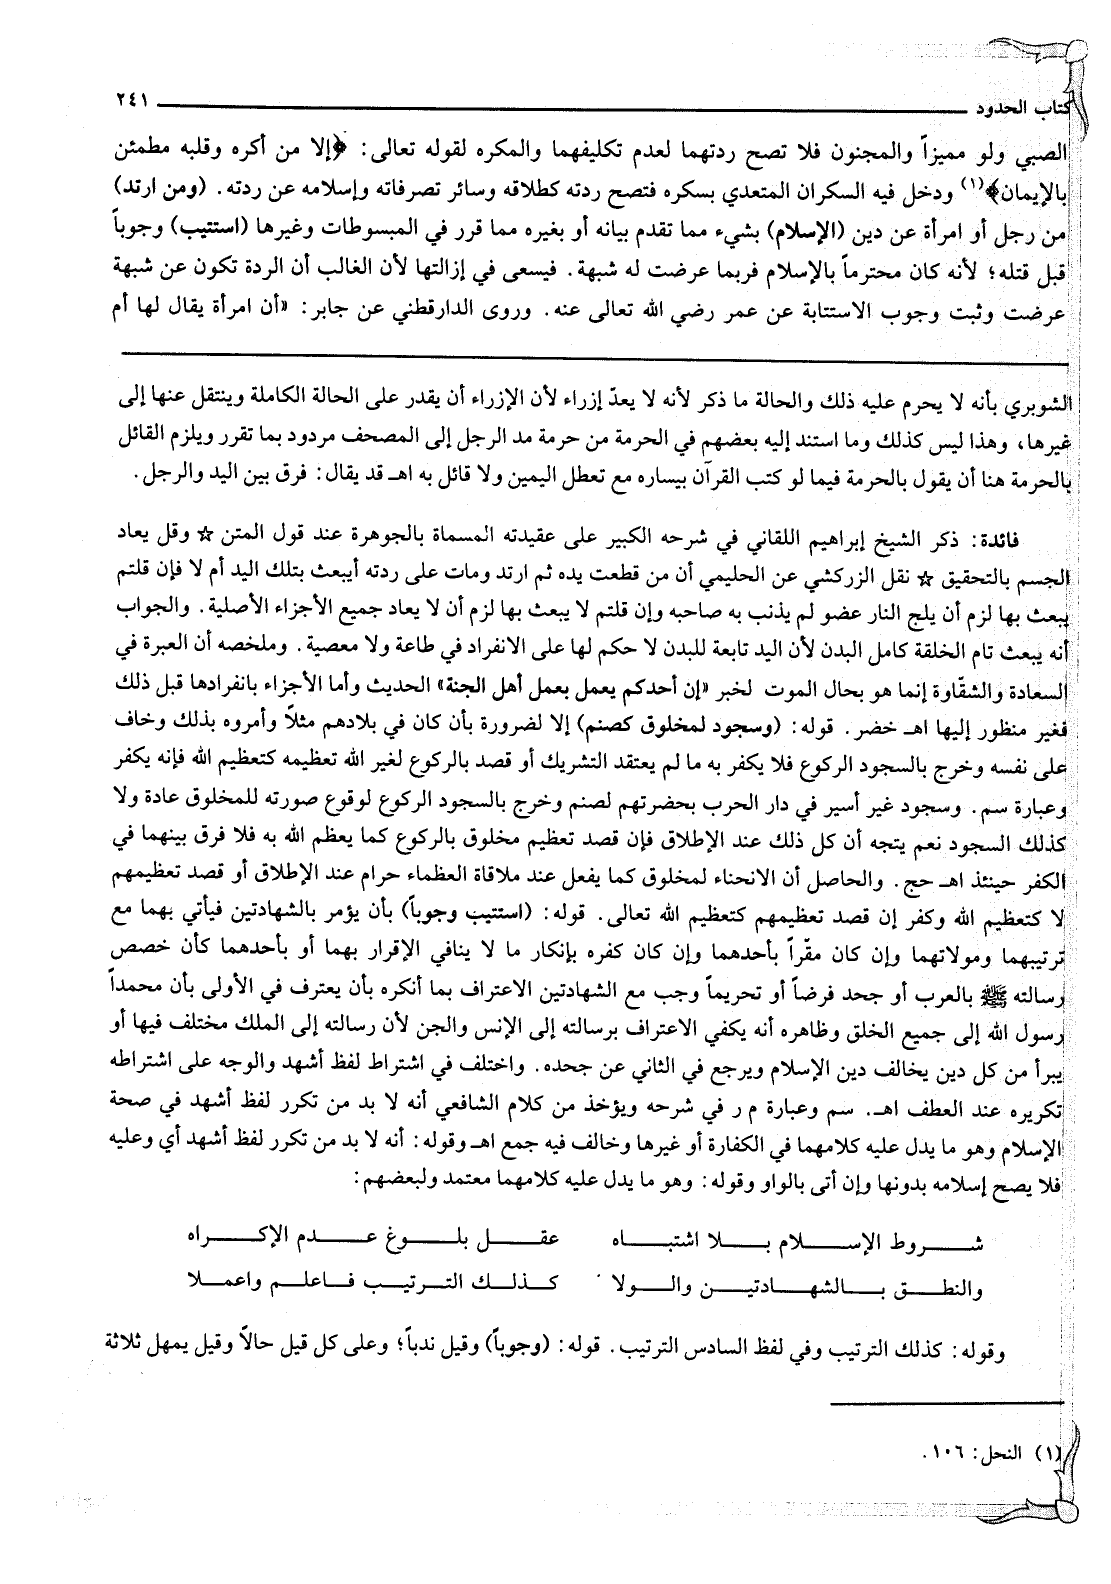 كتاب الحدود ٢٤١
الصبي ولو مميزاً والمجنون فلا تصح ردتهما لعدم تكليفهما والمكره لقوله تعالى: ﴿إلا من أكره وقلبه مطمئن
بالإيمان﴾(١) ودخل فيه السكران المتعدي بسكره فتصح ردته كطلاقه وسائر تصرفاته وإسلامه عن ردته. (ومن ارتد)
من رجل أو امرأة عن دين (الإسلام) بشيء مما تقدم بيانه أو بغيره مما قرر في المبسوطات وغيرها (استتيب) وجوباً
قبل قتله؛ لأنه كان محترماً بالإسلام فربما عرضت له شبهة. فيسعى في إزالتها لأن الغالب أن الردة تكون عن شبهة
عرضت وثبت وجوب الاستتابة عن عمر رضي الله تعالى عنه. وروى الدارقطني عن جابر: «أن امرأة يقال لها أم
الشوبري بأنه لا يحرم عليه ذلك والحالة ما ذكر لأنه لا يعدّ إزراء لأن الإزراء أن يقدر على الحالة الكاملة وينتقل عنها إلى
غيرها، وهذا ليس كذلك وما استند إليه بعضهم في الحرمة من حرمة مد الرجل إلى المصحف مردود بما تقرر ويلزم القائل
بالحرمة هنا أن يقول بالحرمة فيما لو كتب القرآن بيساره مع تعطل اليمين ولا قائل به اهـ قد يقال: فرق بين اليد والرجل.
فائدة: ذكر الشيخ إبراهيم اللقاني في شرحه الكبير على عقيدته المسماة بالجوهرة عند قول المتن ☆ وقل يعاد
الجسم بالتحقيق ☆ نقل الزركشي عن الحليمي أن من قطعت يده ثم ارتد ومات على ردته أيبعث بتلك اليد أم لا فإن قلتم
يبعث بها لزم أن يلج النار عضو لم يذنب به صاحبه وإن قلتم لا يبعث بها لزم أن لا يعاد جميع الأجزاء الأصلية. والجواب
أنه يبعث تام الخلقة كامل البدن لأن اليد تابعة للبدن لا حكم لها على الانفراد في طاعة ولا معصية. وملخصه أن العبرة في
السعادة والشقاوة إنما هو بحال الموت لخبر «إن أحدكم يعمل بعمل أهل الجنة» الحديث وأما الأجزاء بانفرادها قبل ذلك
فغير منظور إليها اهـ خضر. قوله: (وسجود لمخلوق كصنم) إلا لضرورة بأن كان في بلادهم مثلاً وأمروه بذلك وخاف
على نفسه وخرج بالسجود الركوع فلا يكفر به ما لم يعتقد التشريك أو قصد بالركوع لغير الله تعظيمه كتعظيم الله فإنه يكفر
وعبارة سم. وسجود غير أسير في دار الحرب بحضرتهم لصنم وخرج بالسجود الركوع لوقوع صورته للمخلوق عادة ولا
كذلك السجود نعم يتجه أن كل ذلك عند الإطلاق فإن قصد تعظيم مخلوق بالركوع كما يعظم الله به فلا فرق بينهما في
الكفر حينئذ اهـ حج. والحاصل أن الانحناء لمخلوق كما يفعل عند ملاقاة العظماء حرام عند الإطلاق أو قصد تعظيمهم
لا كتعظيم الله وكفر إن قصد تعظيمهم كتعظيم الله تعالى. قوله: (استتيب وجوباً) بأن يؤمر بالشهادتين فيأتي بهما مع
ترتيبهما ومولاتهما وإن كان مقرّاً بأحدهما وإن كان كفره بإنكار ما لا ينافي الإقرار بهما أو بأحدهما كأن خصص
رسالته ﷺ بالعرب أو جحد فرضاً أو تحريماً وجب مع الشهادتين الاعتراف بما أنكره بأن يعترف في الأولى بأن محمداً
رسول الله إلى جميع الخلق وظاهره أنه يكفي الاعتراف برسالته إلى الإنس والجن لأن رسالته إلى الملك مختلف فيها أو
يبرأ من كل دين يخالف دين الإسلام ويرجع في الثاني عن جحده. واختلف في اشتراط لفظ أشهد والوجه على اشتراطه
تكريره عند العطف اهـ. سم وعبارة م ر في شرحه ويؤخذ من كلام الشافعي أنه لا بد من تكرر لفظ أشهد في صحة
الإسلام وهو ما يدل عليه كلامهما في الكفارة أو غيرها وخالف فيه جمع اهـ وقوله: أنه لا بد من تكرر لفظ أشهد أي وعليه
فلا يصح إسلامه بدونها وإن أتى بالواو وقوله: وهو ما يدل عليه كلامهما معتمد ولبعضهم:
شروط الإسلام بلا اشتباه عقل بلوغ عدم الإكراه
والنطق بالشهادتين والولا كذلك الترتيب فاعلم واعملا
وقوله: كذلك الترتيب وفي لفظ السادس الترتيب. قوله: (وجوباً) وقيل ندباً؛ وعلى كل قيل حالاً وقيل يمهل ثلاثة
(١) النحل: ١٠٦.